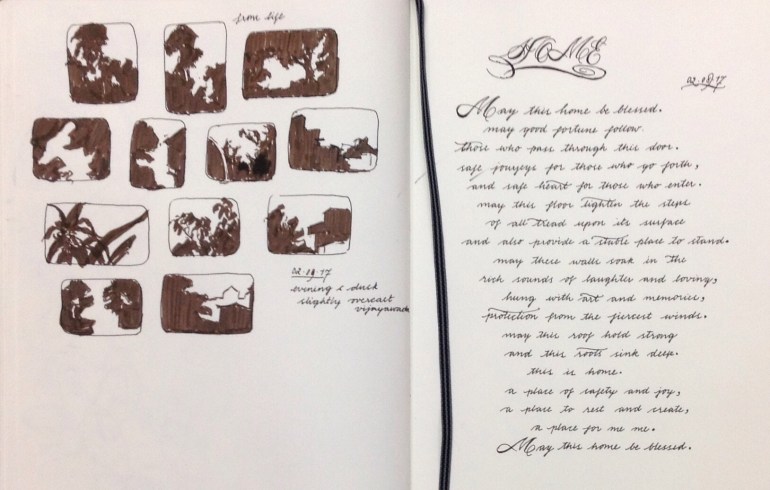 from life
evening & dusk
slightly overcast
vijayawada
HOME
May this home be blessed.
may good fortune follow
those who pass through this door.
safe journeys for those who go forth,
and safe heart for those who enter.
may this floor lighten the steps
of all tread upon its surface
and also provide a stable place to stand.
may these walls soak in the
rich sounds of laughter and loving,
hung with art and memories,
protection from the fiercest winds.
may this roof hold strong
and this roots sink deep.
this is home.
a place of safety and joy,
a place to rest and create,
a place for me me.
May this home be blessed.